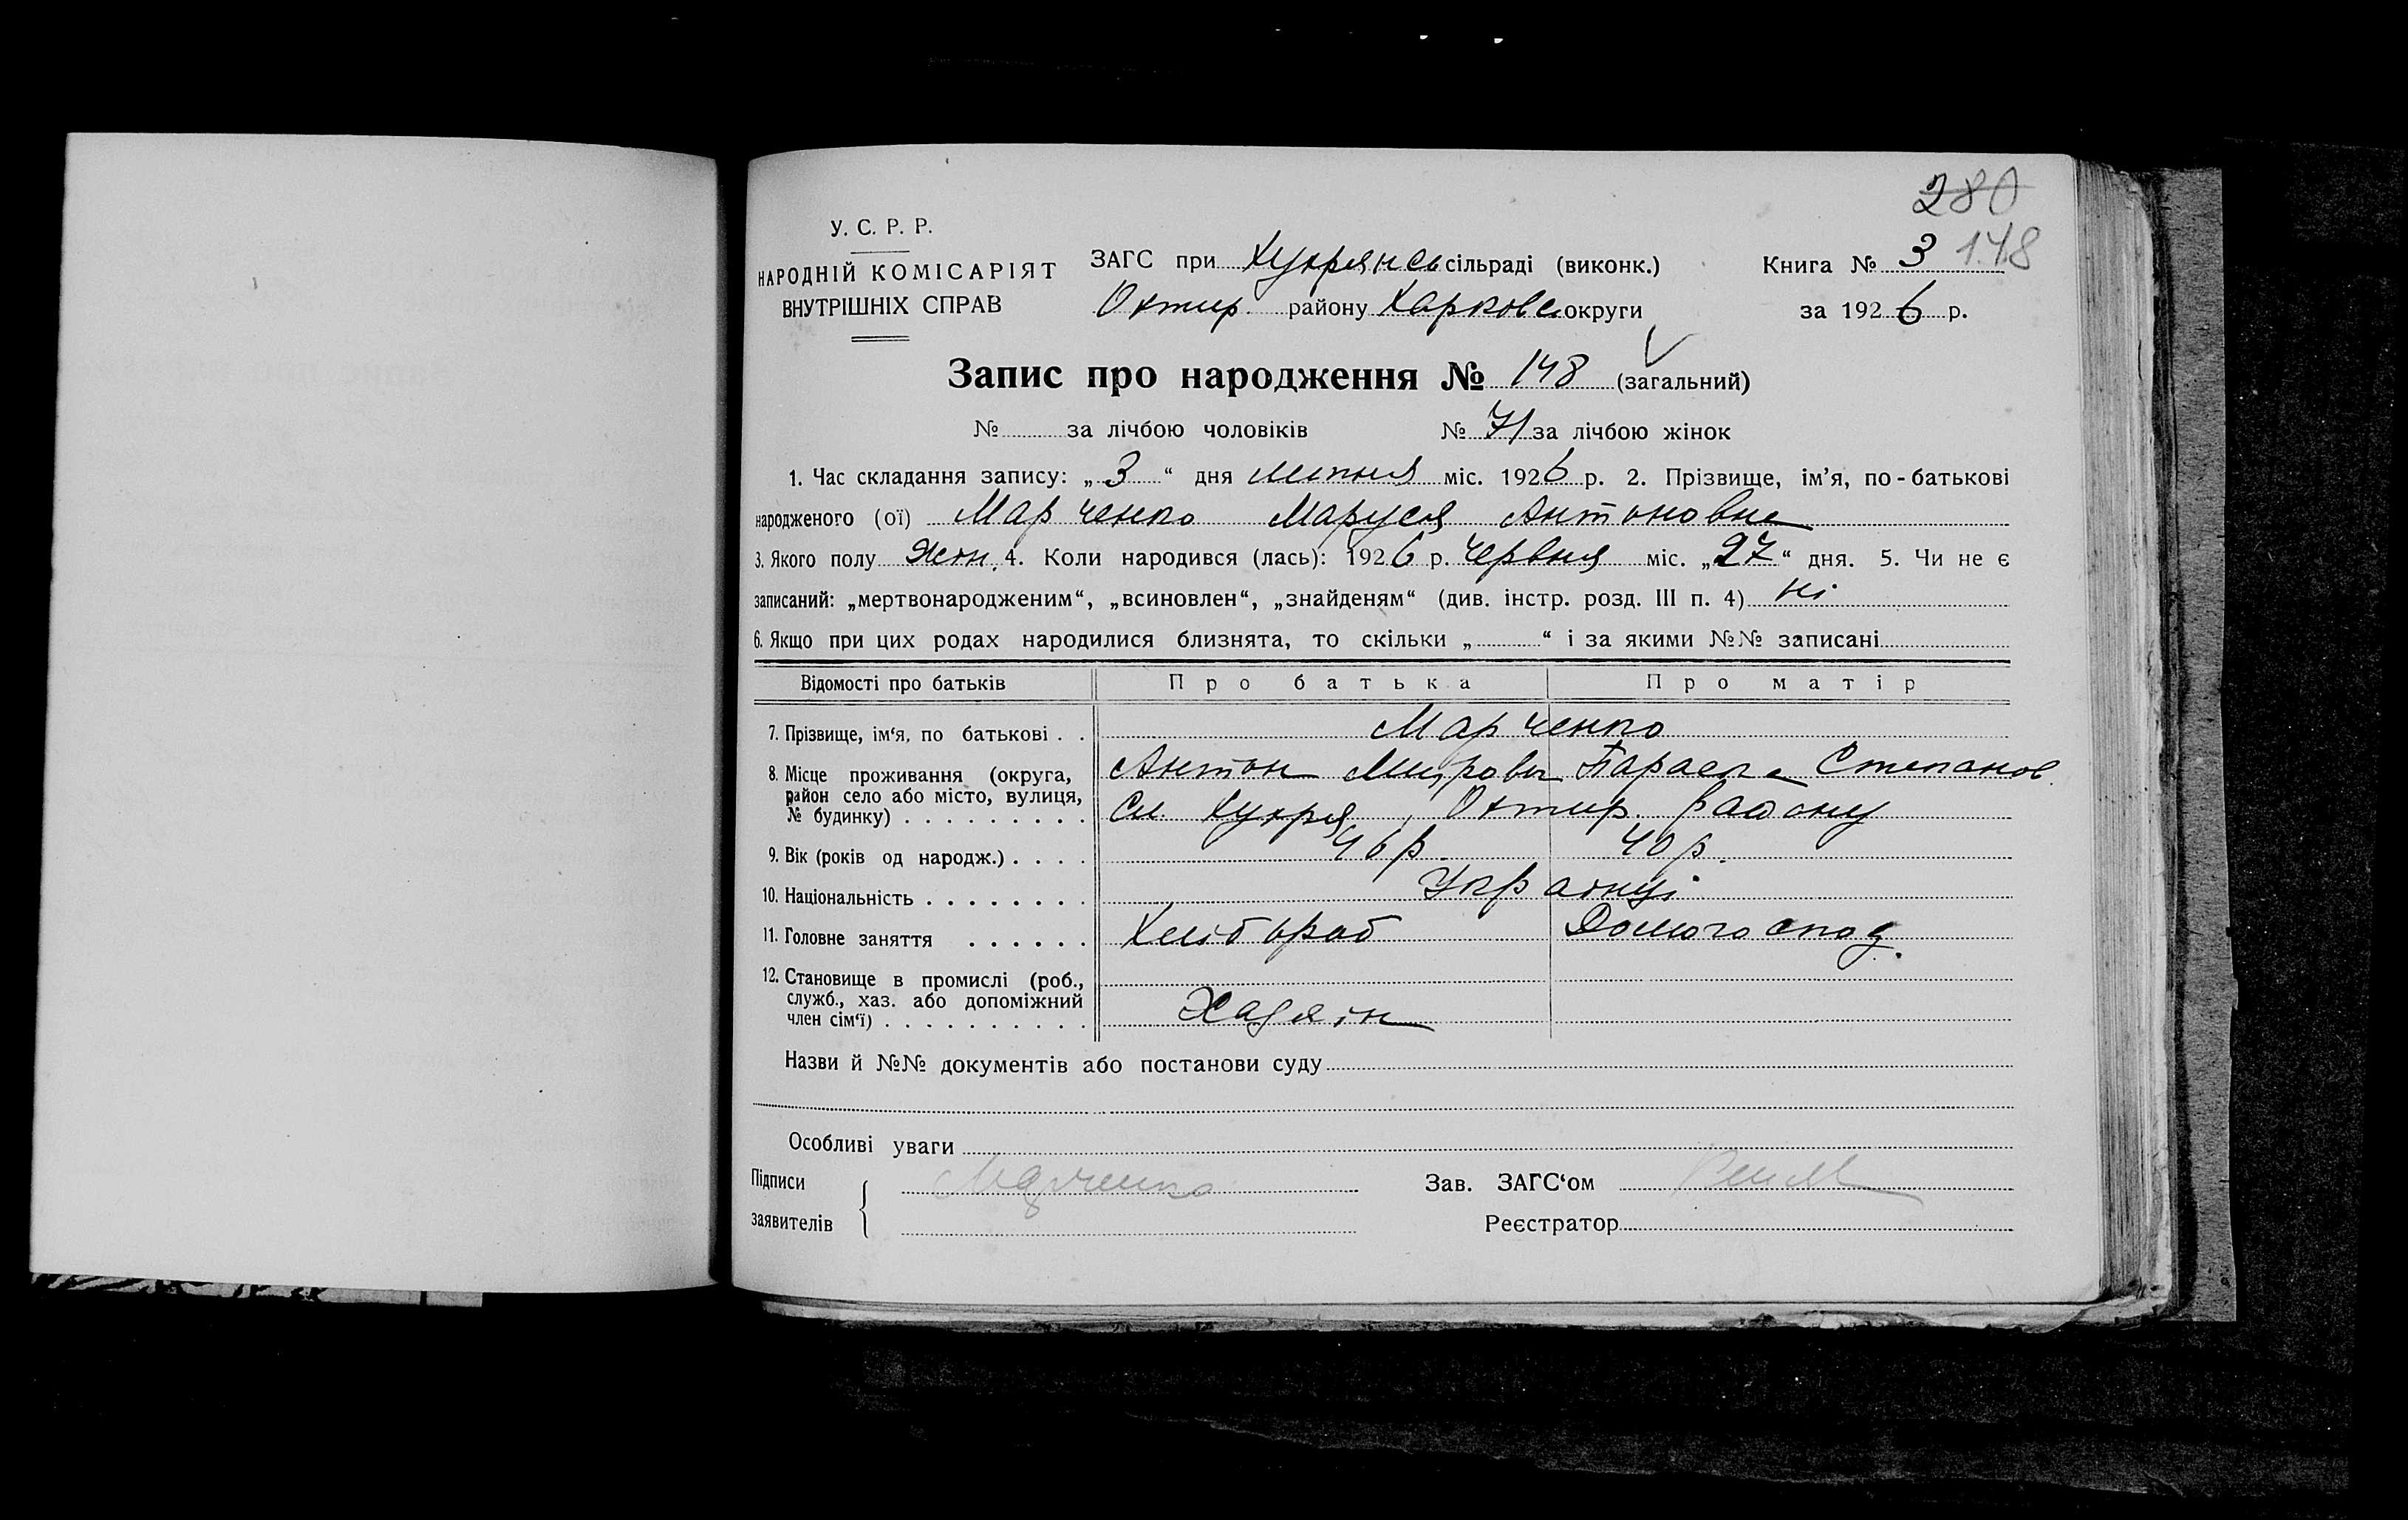 280
У. С. Р. Р.
НАРОДНІЙ КОМІСАРІЯТ
ВНУТРІШНІХ СПРАВ
ЗАГС при Хухрянсь сільраді (виконк.)
Охтир. району Харковс. округи
Книга № 3 148
за 1926 р.
Запис про народження № 148 (загальний)
№ за лічбою чоловіків № 71 за лічбою жінок
1. Час складання запису: „3“ дня липня міс. 1926 р. 2. Прізвище, ім’я, по-батькові
народженого (ої) Марченко Маруся Антоновна
3. Якого полу жін. 4. Коли народився (лась): 1926 р. червня міс. „27“ дня. 5. Чи не є
записаний: „мертвонародженим“, „всиновлен“, „знайденям“ (див. інстр. розд. III п. 4) ні
6. Якщо при цих родах народилися близнята, то скільки „ “ і за якими №№ записані
Відомості про батьків Про батька Про матір
7. Прізвище, ім‘я, по батькові . . Марченко
Антон Параска Степанов.
8. Місце проживання (округа,
район село або місто, вулиця,
№ будинку) . . . . . . . . . Сл. Хухря, Охтир. району
9. Вік (років од народж.) . . . . 46 р. 40 р.
10. Національність . . . . . . . . Українці
11. Головне заняття . . . . . . Хлібороб Домогоспод.
12. Становище в промислі (роб.,
служб., хаз. або допоміжний
член сім‘ї) . . . . . . . . . . Хазяін
Назви й №№ документів або постанови суду
Особливі уваги
Підписи
заявителів
Марченко
Зав. ЗАГС‘ом
Реєстратор